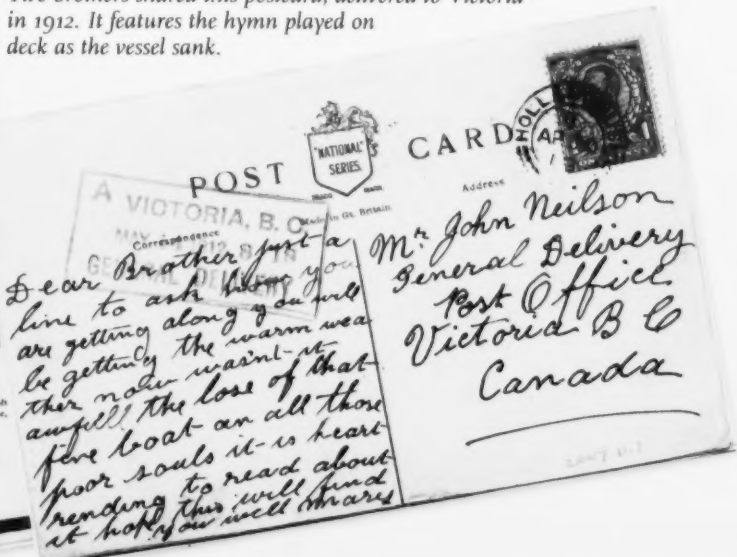 in 1912. It features the hymn played on
deck as the vessel sank.
POST CARD
"NATIONAL"
SERIES
Made in Gt. Britain
Correspondence
Address
HOLL
AP
1
A VICTORIA, B. C.
MAY 1912
GENERAL DELIVERY
Dear Brother just a
line to ask how you
are getting along you will
be getting the warm wea
ther now wasint it
awfull the lose of that
fine boat an all those
poor souls it is heart
rending to read about
it hope this will find
you well Mary
Mr John Neilson
General Delivery
Post Office
Victoria B C
Canada